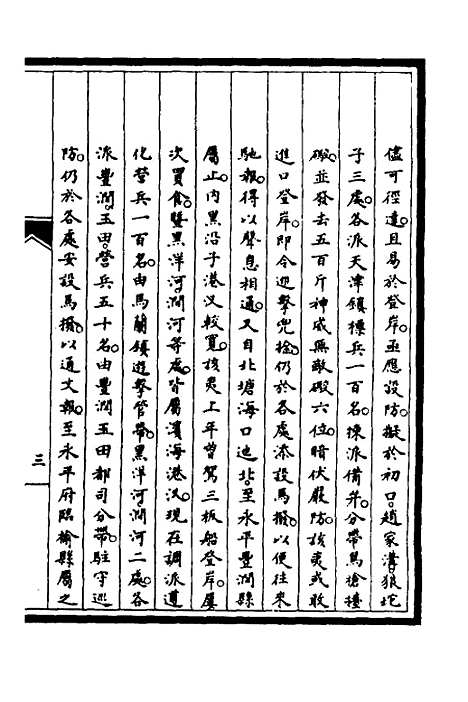 儘可徑達。且易於登岸。亟應設防。擬於初口。趙家溝狼坨
子三處。各派天津鎮標兵一百名。揀派備弁。分帶馬槍擡
礮。並發去五百斤神威無敵礮六位。暗伏嚴防。該夷或敢
進口登岸。即令迎擊兜捦。仍於各處添設馬撥。以便往來
馳報。得以聲息相通。又自北塘海口迤北。至永平豐潤縣
屬止。內黑沿子港汊較寬。該夷上年曾駕三板船登岸。屢
次買食。暨黑洋河。澗河等處。皆屬濱海港汊。現在調派遵
化營兵一百名。由馬蘭鎮遊擊管帶。黑洋河澗河二處。各
派豐潤。玉田。營兵五十名。由豐潤玉田都司分帶。駐守巡
防。仍於各處安設馬撥。以通文報。至永平府臨榆縣屬之
三